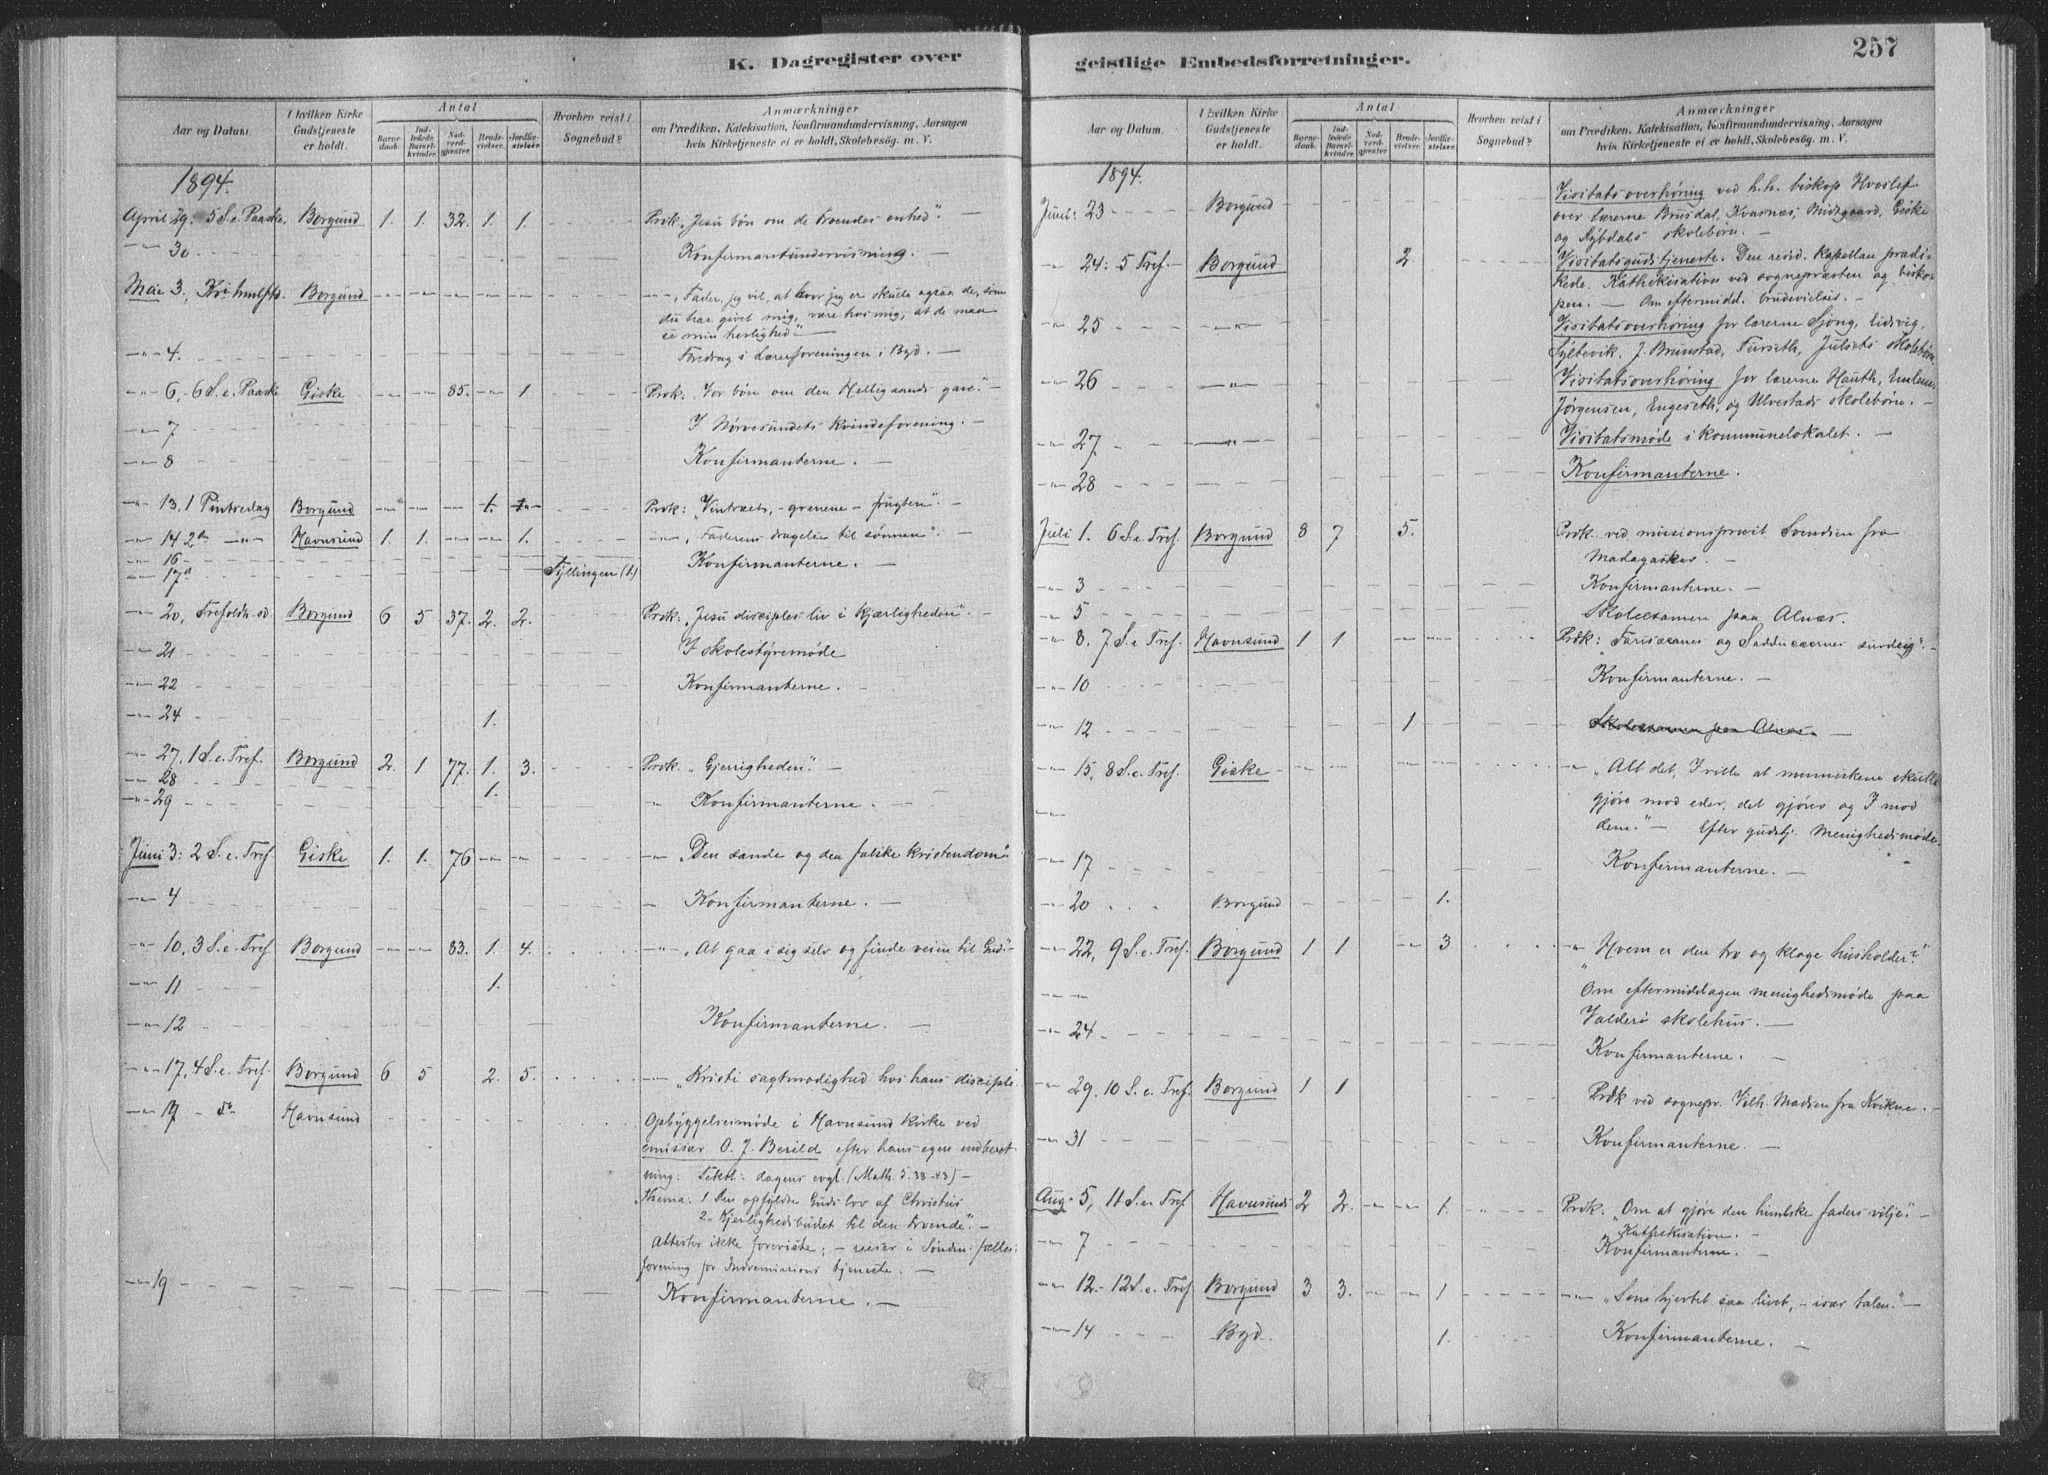 K. Dagregister over
Aar og Datum.
I hvilken Kirke Gudstjeneste er holdt.
Antal
Barnedaab.
Indledede Barselkvinder.
Nadverdgjester.
Brudevielser.
Jordfæstelser.
Hvorhen reist i Sognebud?
Anmærkninger
om Prædiken, Katekisation, Konfirmandundervisning, Aarsagen
hvis Kirketjeneste ei er holdt, Skolebesøg. m. V.
1894.
April 29: 5 S. e. Paaske, Borgund 1. 1. 32. 1. 1. Prdk. „Jesu bøn om de troendes enhed". —
-"- 30 Konfirmantundervisning. —
Mai 3., Kri himlfts. Borgund -"- „Fader, jeg vil, at hvor jeg er skulle ogsaa de, som
du har givet mig, være hos mig, at de maa
se min herlighed" —
-"- 4. Foredrag i Lærerforeningen i Byd. —
-"- 6, - 6 S. e. Paaske Giske 85. 1 Prdk: „Vor bøn om den Helligaands gave". —
-"- 7 I Nørvesundets kvindeforening. —
-"- 8 Konfirmanterne. —
-"- 13, 1 Pintsedag Borgund 1. Prdk: „Vintræet, - grenene - frugten". —
-"- 14 2den -"- Havnsund 1. 1. 1. -"- „Faderens dragelse til sønnen". —
-"- 16 Konfirmanterne. —
-"- 17d Tyllingen (1.)
-"- 20, Trefoldh. sd. Borgund 6 5 37. 2. 2. Prdk: „Jesu disciples liv i Kjærligheden". —
-"- 21 I skolestyremøde
-"- 22 Konfirmanterne. —
-"- 24 1.
-"- 27, 1 S. e. Tref. Borgund 2. 1 77. 1. 3. Prdk. „Gjerrigheden". —
-"- 28 1.
-"- 29 Konfirmanterne. —
Juni 3: 2 S. e. Tref Giske 1. 1. 76 -"- „Den sande og den falske kristendom"
-"- 4 Konfirmanterne. —
-"- 10, 3 S. e. Tref. Borgund 83. 1. 4. -"- „At gaa i sig selv og finde veien til Gud" —
-"- 11 1.
-"- 12 Konfirmanterne. —
-"- 17, 4 S. e. Tref. Borgund 6 5 2. 5. -"- „Kristi sagtmodighed hos hans discipli
-"- 17 - do Havnsund Opbyggelsesmøde i Havnsund kirke ved
emissær O. J. Berild efter hans egen indberet
ning: Tekst: dagens evgl. (Math. 5. 38-43) —
Thema: 1 Den opfyldte Guds lov af Christus
2 - Kjerlighedsbudet til den troende". —
Attester ikke foreviste; - reiser i Søndm. fælles-
forening for Indremissions tjeneste. —
-"- 19 Konfirmanterne. —
geistlige Embedsforretninger.
257
Aar og Datum.
I hvilken Kirke Gudstjeneste er holdt.
Antal
Barnedaab.
Indledede Barselkvinder.
Nadverdgjester.
Brudevielser.
Jordfæstelser.
Hvorhen reist i Sognebud?
Anmærkninger
om Prædiken, Katekisation, Konfirmandundervisning, Aarsagen
hvis Kirketjeneste ei er holdt, Skolebesøg. m. V.
1894.
Juni: 23 Borgund Visitatsoverhøring ved h. h. biskop Hvoslef
over lærerne Brusdal, Kvasnes, Midtgaard, Giske
og Rybdals skolebørn. —
-"- 24: 5 Tref. Borgund 2. Visitatsgudstjeneste. Den resid. Kapellan prædi-
kede. Kathekisation ved sognepræsten og bisko-
pen. — Om eftermidd. brudevielser. —
-"- 25 -"- Visitatsoverhøring for lærerne Sjong, Lidsvig,
Syltevik, J. Brunstad, Furseth, Julsets skolebørn.
-"- 26 -"- Visitatsoverhøring for lærerne Hauth,
Jørgensen, Engeseth, og Ulvestads skolebørn. —
-"- 27 -"- Visitatsmøde i kommunelokalet. —
-"- 28 Konfirmanterne.
Juli 1. 6 S. e. Tref. Borgund 8 7 5. Prdk. ved missionsprest Svendsen fra
Madagaskar. —
-"- 3 Konfirmanterne. —
-"- 5 Skoleexamen paa Alnæs.
-"- 8, 7 S. e Tref. Havnsund 1 1 Prdk: „Farisæernes og Sadducæernes surdeig". —
-"- 10 Konfirmanterne. —
-"- 12 1 Skoleexamen paa Alnæs. —
-"- 15, 8 S. e. Tref. Giske -"- „Alt det, I ville at menneskene skulle
gjøre mod eder, det gjører og I mod
dem." — Efter gudstj. Menighedsmøde.
-"- 17 Konfirmanterne. —
-"- 20 Borgund 1.
-"- 22, 9 S. e. Tref. Borgund 1 1 3 -"- „Hvem er den tro og kloge husholder?"
-"- -"- Om eftermiddagen menighedsmøde paa
Valderø skolehus. —
-"- 24 Konfirmanterne. —
-"- 29. 10 S. e. Tref. Borgund 1 1 Prdk ved sognepr. Vilh. Madsen fra Kvikne. —
-"- 31 Konfirmanterne. —
Aug. 5, 11 S. e. Tref Havnsund 2 2. 1. Prdk: „Om at gjøre den himlske faders vilje". —
Kathekisation. —
-"- 7 Konfirmanterne. —
-"- 12. - 12 S. e. Tref. Borgund 3 3. 1 -"- „Som hjertet saa livet, - især talen." —
-"- 14 Byd. 1. Konfirmanterne. —